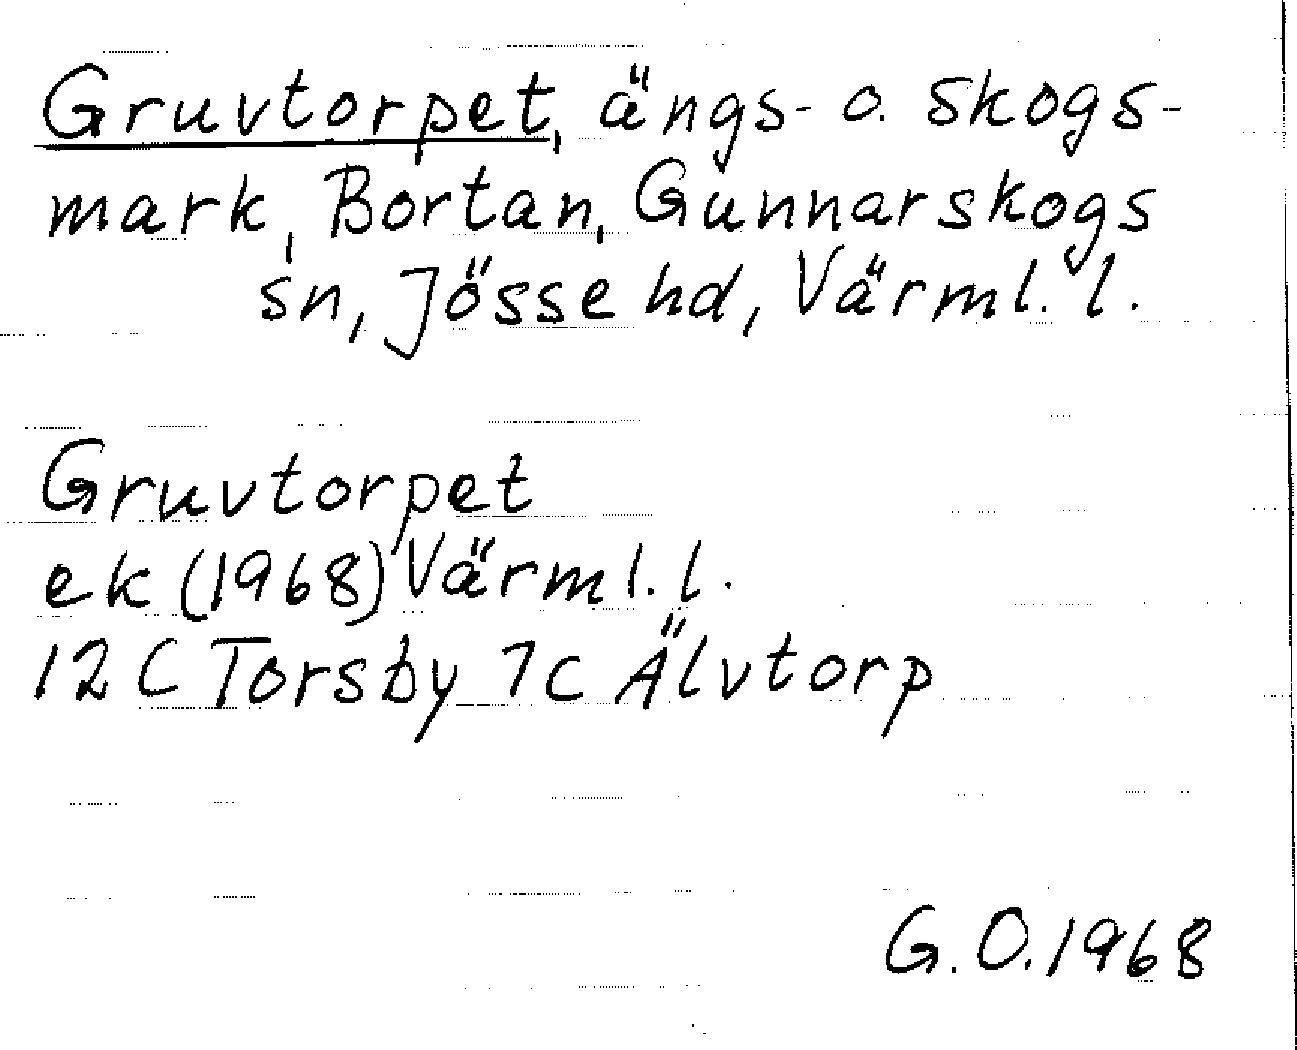 Gruvtorpet, ängs- o. skogs-
mark, Bortan, Gunnarskogs
sn, Jösse hd, Värml. l.
Gruvtorpet
ek (1968) Värml. l.
12 C Torsby 7c Älvtorp
G.O. 1968